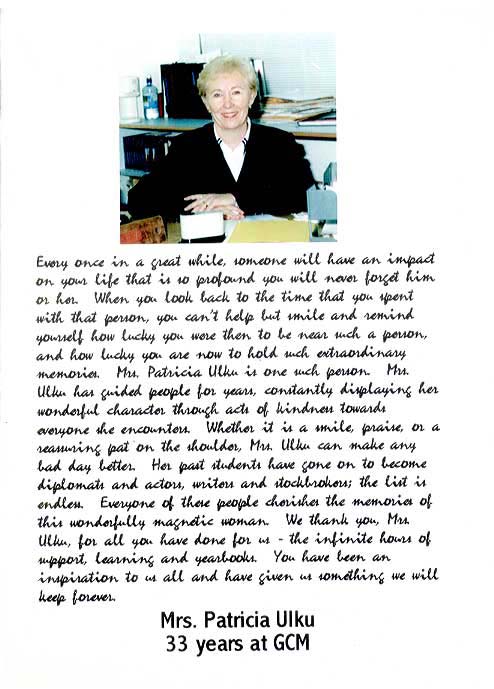 Every once in a great while, someone will have an impact
on your life that is so profound you will never forget him
or her. When you look back to the time that you spent
with that person, you can't help but smile and remind
yourself how lucky you were then to be near such a person,
and how lucky you are now to hold such extraordinary
memories. Mrs. Patricia Ulku is one such person. Mrs.
Ulku has guided people for years, constantly displaying her
wonderful character through acts of kindness towards
everyone she encounters. Whether it is a smile, praise, or a
reassuring pat on the shoulder, Mrs. Ulku can make any
bad day better. Her past students have gone on to become
diplomats and actors, writers and stockbrokers; the list is
endless. Everyone of these people cherishes the memories of
this wonderfully magnetic woman. We thank you, Mrs.
Ulku, for all you have done for us - the infinite hours of
support, learning and yearbooks. You have been an
inspiration to us all and have given us something we will
keep forever.
Mrs. Patricia Ulku
33 years at GCM